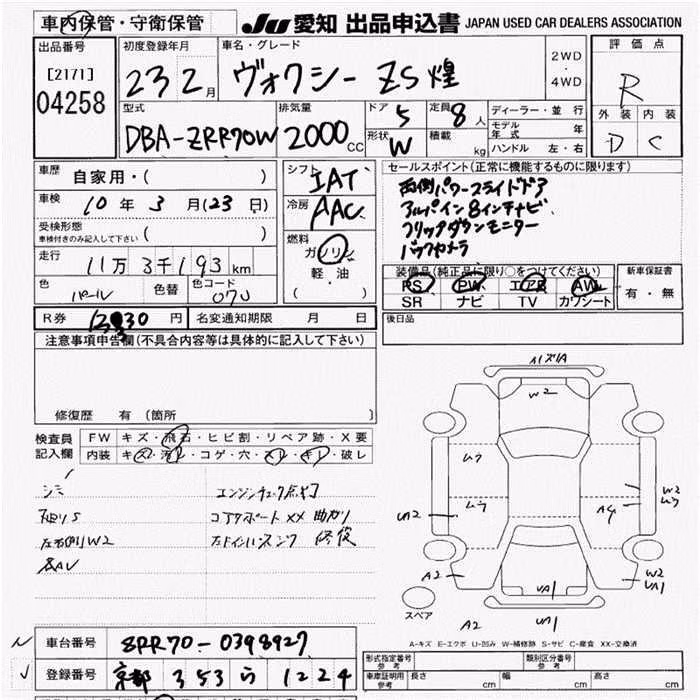 車内保管・守衛保管
JU 愛知 出品申込書 JAPAN USED CAR DEALERS ASSOCIATION
出品番号
[2171]
04258
初度登録年月
23 2月
車名・グレード
ヴォクシー ZS 煌
2WD
・
4WD
評価点
R
外装 内装
D C
型式
DBA-ZRR70W
排気量
2000cc
ドア 5
形状 W
定員 8人
積載 kg
ディーラー・並行
モデル年式 年
ハンドル 左・右
車歴 自家用・( )
車検 10年3月(23日)
受検形態
車検付きのみ記入して下さい ( )
走行 11万3千193km
色 パール
色替
色コード 070
シフト IAT
冷房 AAC
燃料
ガソリン
軽・油
( )
セールスポイント(正常に機能するものに限ります)
両側パワースライドドア
アルパイン8インチナビ
フリップダウンモニター
バックカメラ
装備品(純正品に限り○をつけてください)
PS PW エアB AW
SR ナビ TV カワシート
新車保証書
有・無
R券 円
名変通知期限 月 日
後日品
注意事項申告欄(不具合内容等は具体的に記入して下さい)
修復歴 有 (箇所 )
検査員
記入欄
FW キズ・飛石・ヒビ割・リペア跡・X要
内装 キズ・汚レ・コゲ・穴・スレ・キレ・破レ
シミ
エンジンチェック点灯
コアサポートXX 曲がり
左右側W2
各AU
左FインパネジK 修復
W2
ムラ
ムラ
UA2
A2
A2
UA1
UA1
W2
ムラ
W2
UA1
スペア
A-キズ E-エクボ U-凹み W-補修跡 S-サビ C-腐食 XX-交換済
車台番号 ZRR70-0398927
登録番号 京都 353 ら 1224
形式指定番号
参考
類別区分番号
参考
車庫証明用
参考
長さ cm
幅 cm
高さ cm